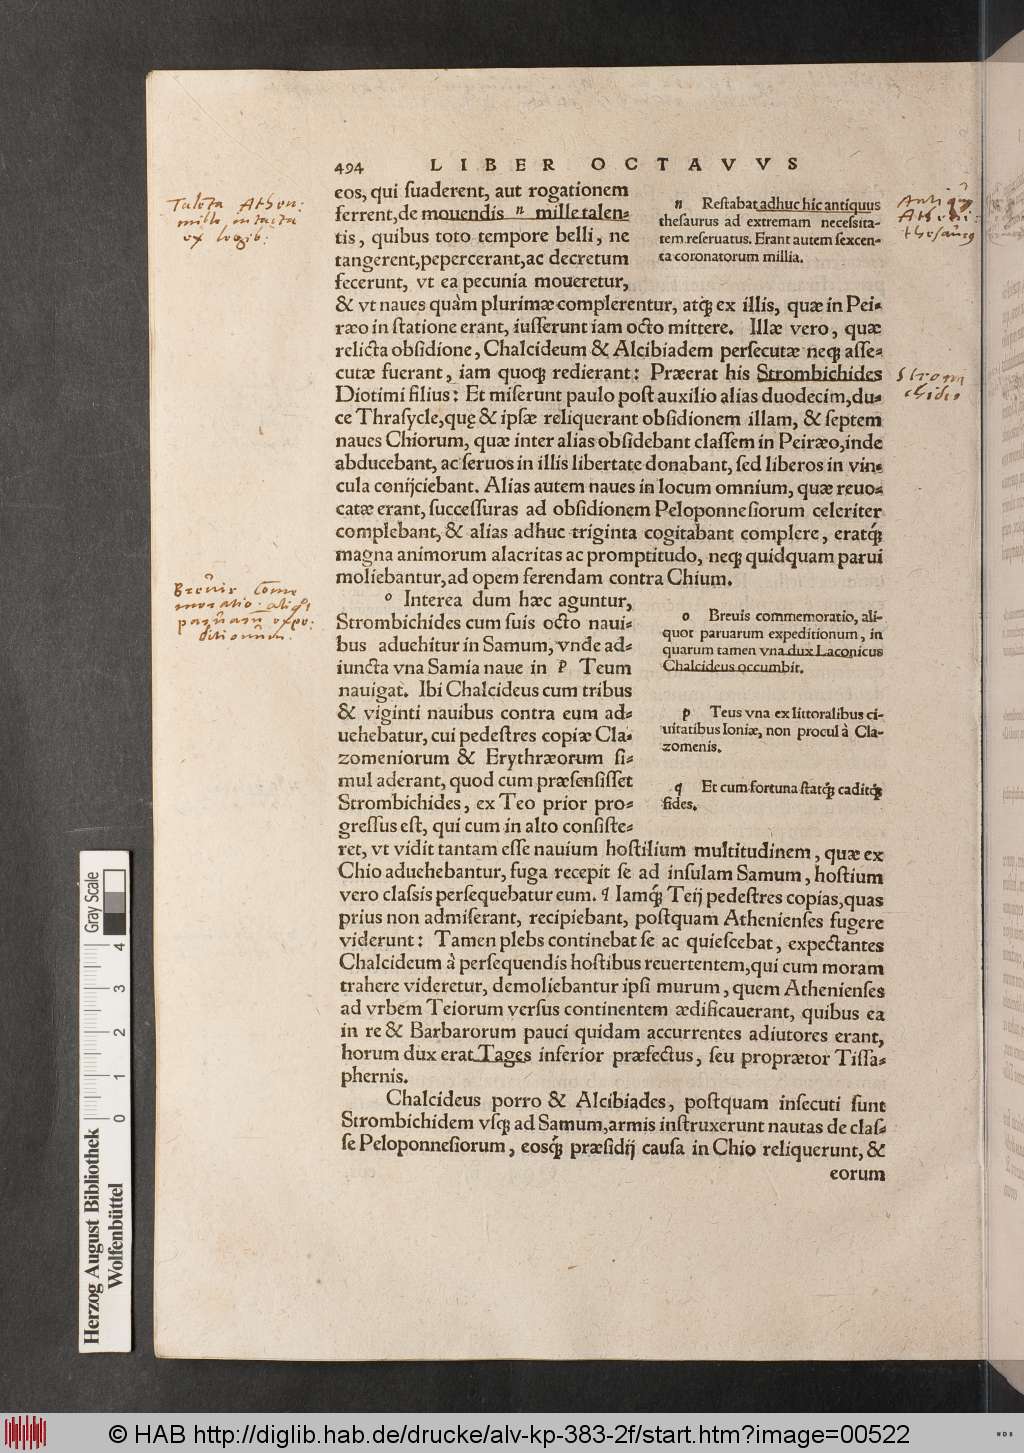 494 LIBER OCTAVVS
eos, qui ſuaderent, aut rogationem
ferrent, de mouendis n mille talen-
tis, quibus toto tempore belli, ne
tangerent, pepercerant, ac decretum
fecerunt, vt ea pecunia moueretur,
n Reſtabat adhuc hic antiquus
theſaurus ad extremam neceſsita-
tem reſeruatus. Erant autem ſexcen-
ta coronatorum millia.
Talēta Athen:
mille intacta
ex legib:
Athenī:
& vt naues quàm plurimæ complerentur, atq́; ex illis, quæ in Pei-
ræo in ſtatione erant, iuſſerunt iam octo mittere. Illæ vero, quæ
relicta obſidione, Chalcideum & Alcibiadem perſecutæ neq; aſſe-
cutæ fuerant, iam quoq; redierant: Præerat his Strombichides
Stromi
chides
Diotimi filius: Et miſerunt paulo poſt auxilio alias duodecim, du-
ce Thraſycle, quę & ipſæ reliquerant obſidionem illam, & ſeptem
naues Chiorum, quæ inter alias obſidebant claſſem in Peiræo, inde
abducebant, ac ſeruos in illis libertate donabant, ſed liberos in vin-
cula conijciebant. Alias autem naues in locum omnium, quæ reuo-
catæ erant, ſucceſſuras ad obſidionem Peloponneſiorum celeriter
complebant, & alias adhuc triginta cogitabant complere, eratq́;
magna animorum alacritas ac promptitudo, neq; quidquam parui
moliebantur, ad opem ferendam contra Chium.
o Interea dum hæc aguntur,
Strombichides cum ſuis octo naui-
bus aduehitur in Samum, vnde ad-
iuncta vna Samia naue in p Teum
nauigat. Ibi Chalcideus cum tribus
& viginti nauibus contra eum ad-
uehebatur, cui pedeſtres copiæ Cla-
zomeniorum & Erythræorum ſi-
mul aderant, quod cum præſenſiſſet
Strombichides, ex Teo prior pro-
greſſus eſt, qui cum in alto conſiſte-
o Breuis commemoratio, ali-
quot paruarum expeditionum, in
quarum tamen vna dux Laconicus
Chalcideus occumbit.
p Teus vna ex littoralibus ci-
uitatibus Ioniæ, non procul à Cla-
zomenis.
q Et cum fortuna ſtatq́; caditq́;
fides.
Breuis Comme
moratio aliq̄t
paruarū expe:
ditionum.
ret, vt vidit tantam eſſe nauium hoſtilium multitudinem, quæ ex
Chio aduehebantur, fuga recepit ſe ad inſulam Samum, hoſtium
vero claſsis perſequebatur eum. q Iamq́; Teij pedeſtres copias, quas
prius non admiſerant, recipiebant, poſtquam Athenienſes fugere
viderunt: Tamen plebs continebat ſe ac quieſcebat, expectantes
Chalcideum à perſequendis hoſtibus reuertentem, qui cum moram
trahere videretur, demoliebantur ipſi murum, quem Athenienſes
ad vrbem Teiorum verſus continentem ædificauerant, quibus ea
in re & Barbarorum pauci quidam accurrentes adiutores erant,
horum dux erat Tages inferior præfectus, ſeu proprætor Tiſſa-
phernis.
Chalcideus porro & Alcibiades, poſtquam inſecuti ſunt
Strombichidem vſq; ad Samum, armis inſtruxerunt nautas de claſ-
ſe Peloponneſiorum, eosq́; præſidij cauſa in Chio reliquerunt, &
eorum
Gray Scale
0 1 2 3 4
Herzog August Bibliothek
Wolfenbüttel
© HAB http://diglib.hab.de/drucke/alv-kp-383-2f/start.htm?image=00522